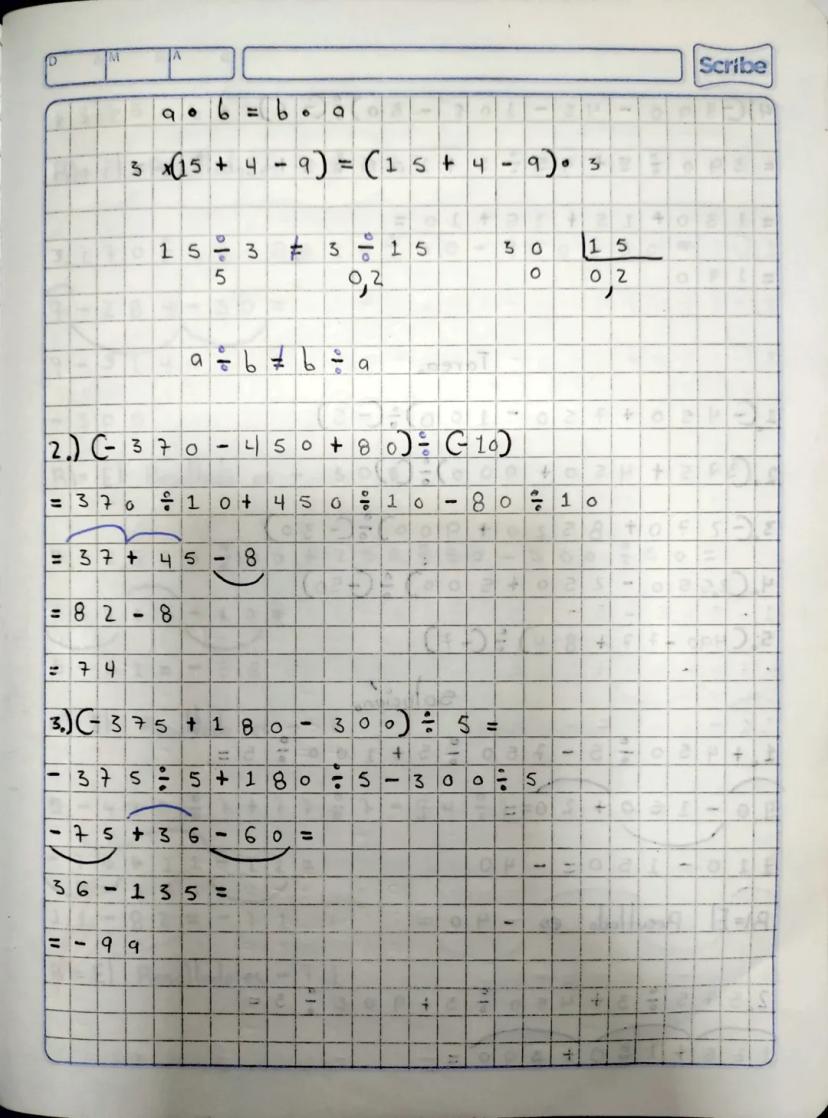 D M A Scribe
a • b = b • a
3 x(15 + 4 - 9) = (15 + 4 - 9)• 3
15 ÷ 3 ≠ 3 ÷ 15 30 |15
5 0,2 0 0,2
a ÷ b ≠ b ÷ a
2.) (-370 - 450 + 80) ÷ (-10)
= 370 ÷ 10 + 450 ÷ 10 - 80 ÷ 10
= 37 + 45 - 8
= 82 - 8
= 74
3.) (-375 + 180 - 300) ÷ 5 =
-375 ÷ 5 + 180 ÷ 5 - 300 ÷ 5
-75 + 36 - 60 =
36 - 135 =
= -99